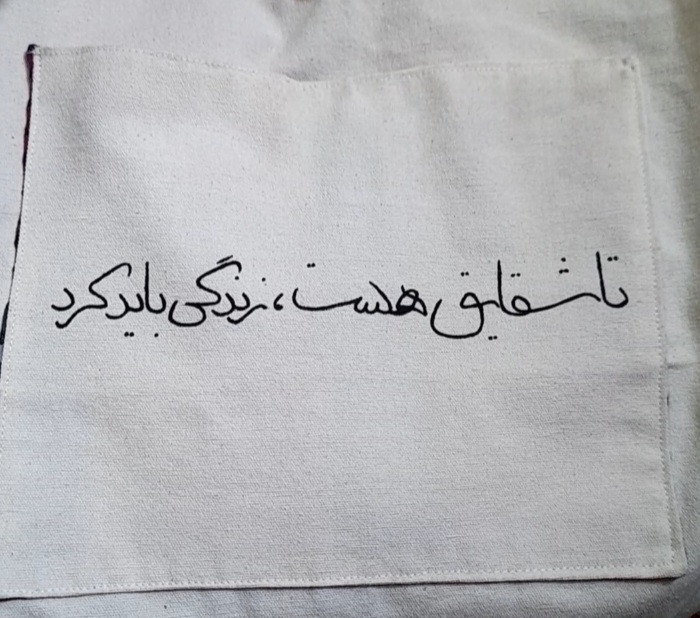 تا شقایق هست، زندگی باید کرد